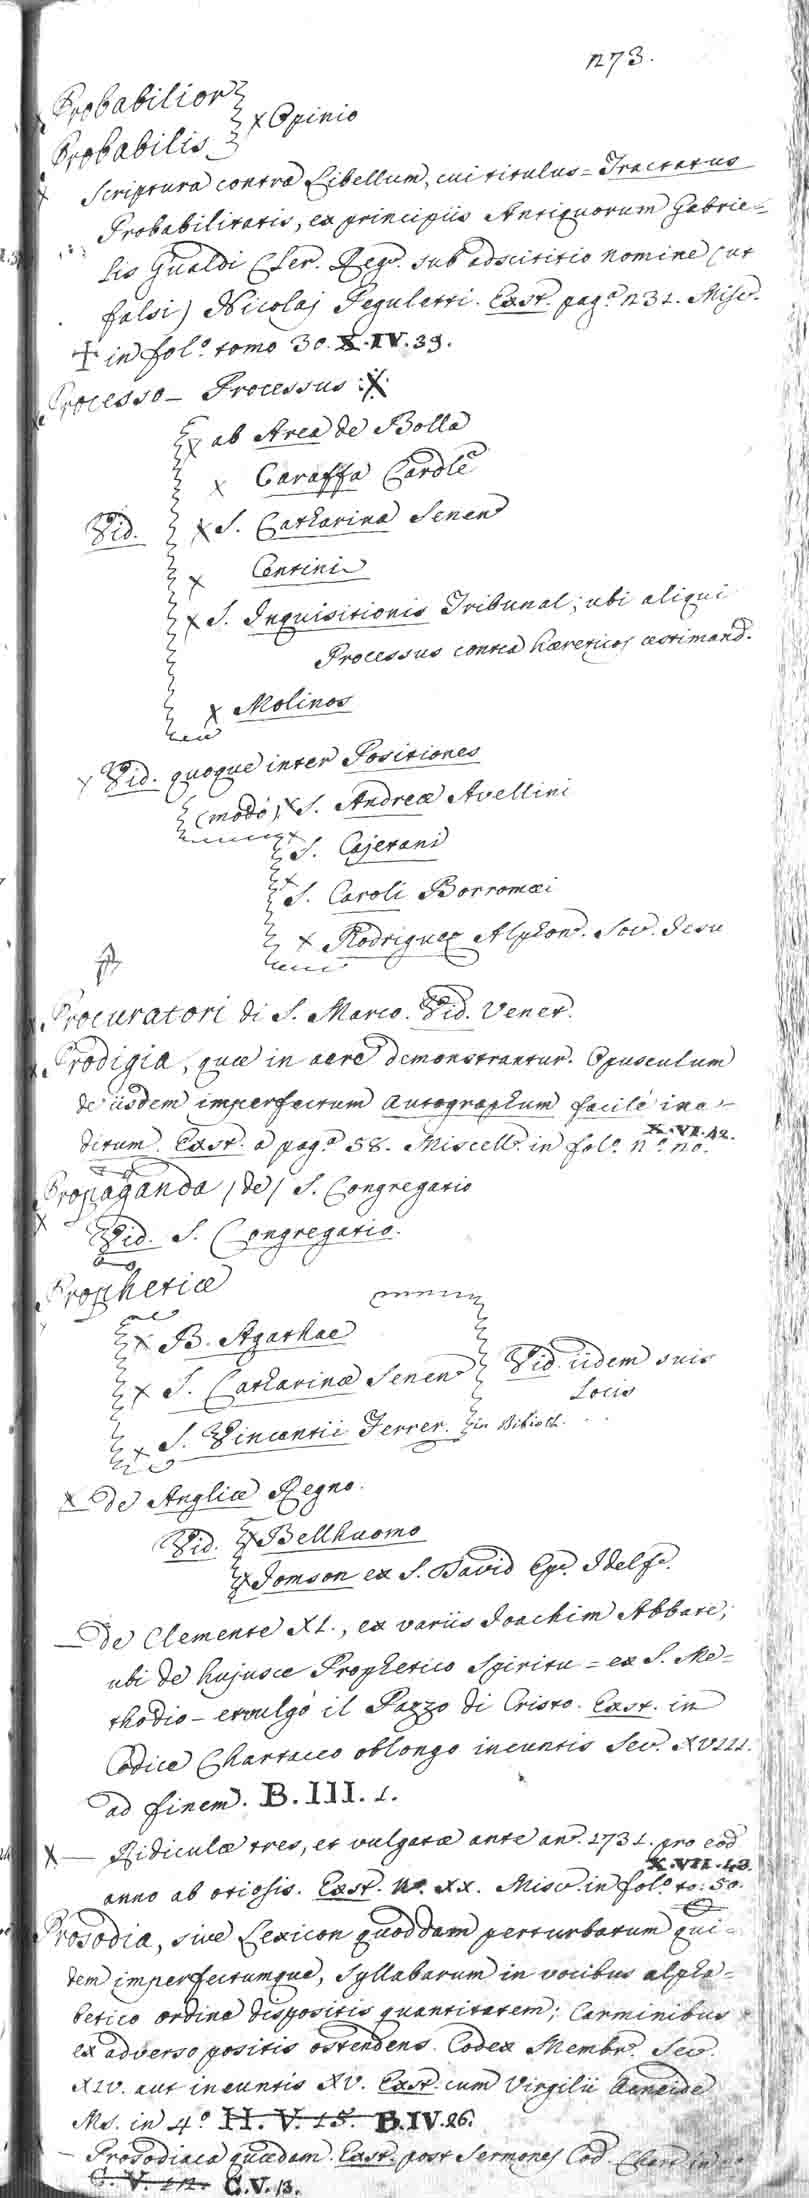 273.
Probabilior
Probabilis } x Opinio
x Scriptura contra Libellum, cui titulus = Tractatus
Probabilitatis, ex principiis Antiquorum Gabrie=
lis Gualdi Cler. Reg. sub adscititio nomine (ut
falsi) Nicolaj Peguletti. Exst. pag.ª 231. Misc.
in fol.º tomo 30. X.IV.39.
Processo _ Processus :X:
x ab Area de Bolla
x Caraffa Cardle
Vid. x S. Catharina Senen
x Centini
x S. Inquisitionis Tribunal; ubi aliqui
Processus contra haereticos aestimand.
x Molinos
x Vid. quoque inter Positiones
(modo) x S. Andreae Avellini
x S. Cajetani
x S. Caroli Borromaei
x Rodriguez Alphon. Soc. Jesu
x Procuratori di S. Marco. Vid. Venet.
x Prodigia, quae in aere demonstrantur. Opusculum
de iisdem imperfectum autographum facilè ine=
ditum. Exst. a pag.ª 58. Miscell. in fol.º n.º 20. X.VI.42.
Propaganda (de) S. Congregatio
x Vid. S. Congregatio.
Prophetiae
x B. Agathae
x S. Catharinae Senen
x S. Vincentii Ferrer. in Biblioth.
Vid. iidem suis
locis
x _ de Angliae Regno.
Vid. x Bellhuomo
x Jomson ex S. David Ep. Idelf.
_ de Clemente XI., ex variis Joachim Abbate;
ubi de hujusce Prophetico Spiritu = ex S. Me=
thodio _ et vulgò il Pazzo di Cristo. Exst. in
Codice Chartaceo oblongo incuntis Sec. XVIII.
ad finem. B.III.1.
x _ Ridiculae tres, et vulgatae ante an. 1731. pro eod
anno ab otiosis. Exst. N.º XX. Misc. in fol.º to: 50. X.VII.43.
Prosodia, sive Lexicon quoddam perturbatum qui=
dem imperfectumque, Syllabarum in vocibus alpha=
betico ordine dispositis quantitatem; Carminibus
ex adverso positis ostendens. Codex Membr. Sec.
XIV. aut incuntis XV. Exst. cum Virgilii Aeneide
Ms. in 4.º H.V.15. B.IV.26.
_ Prosodiaca quaedam. Exst. post Sermones Cod. Chart in
C.V.12. C.V.13.